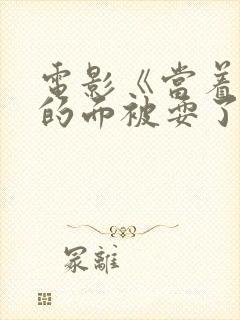 電影《當着
的面被耍了
冢離